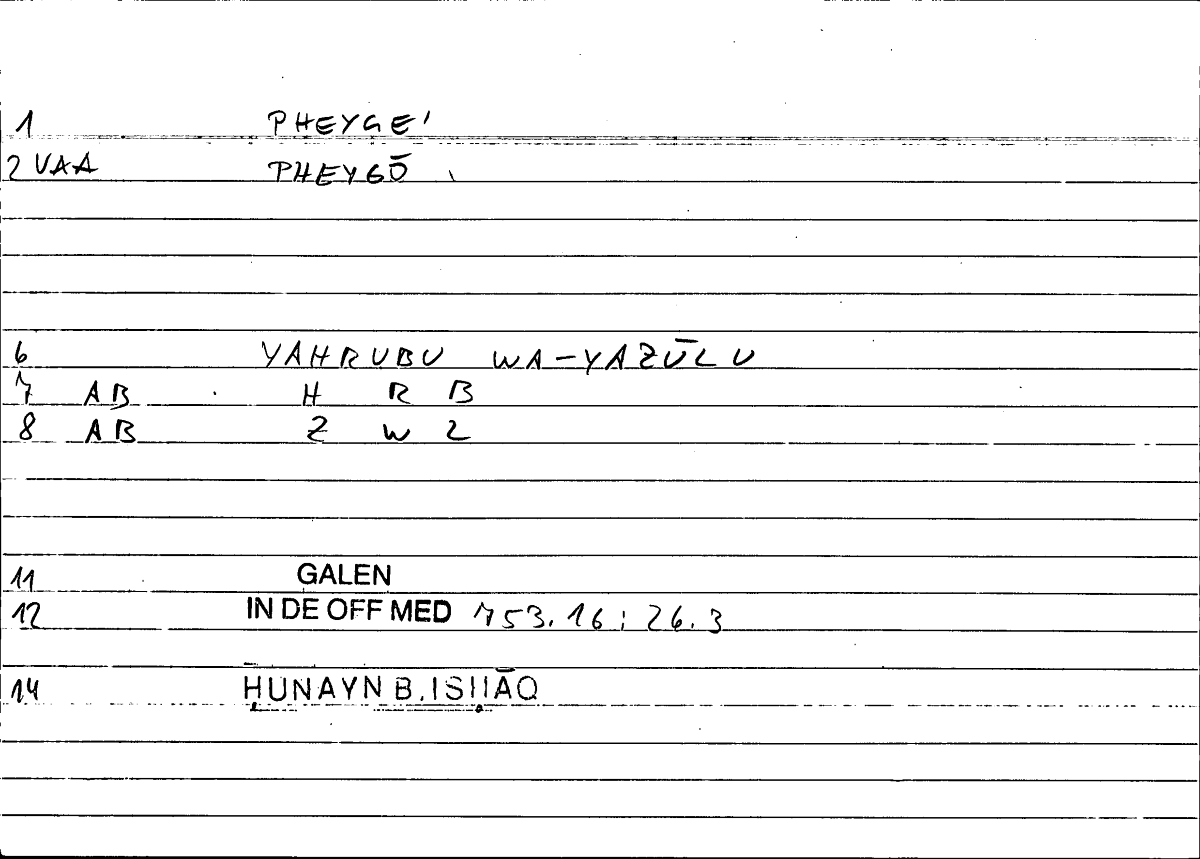 1 PHEYGE'
2 VAA PHEYGŌ
6 YAHRUBU WA-YAZŪLU
7 AB H R B
8 AB Z W L
11 GALEN
12 IN DE OFF MED 753.16 : 26.3
14 ḤUNAYN B. ISḤĀQ